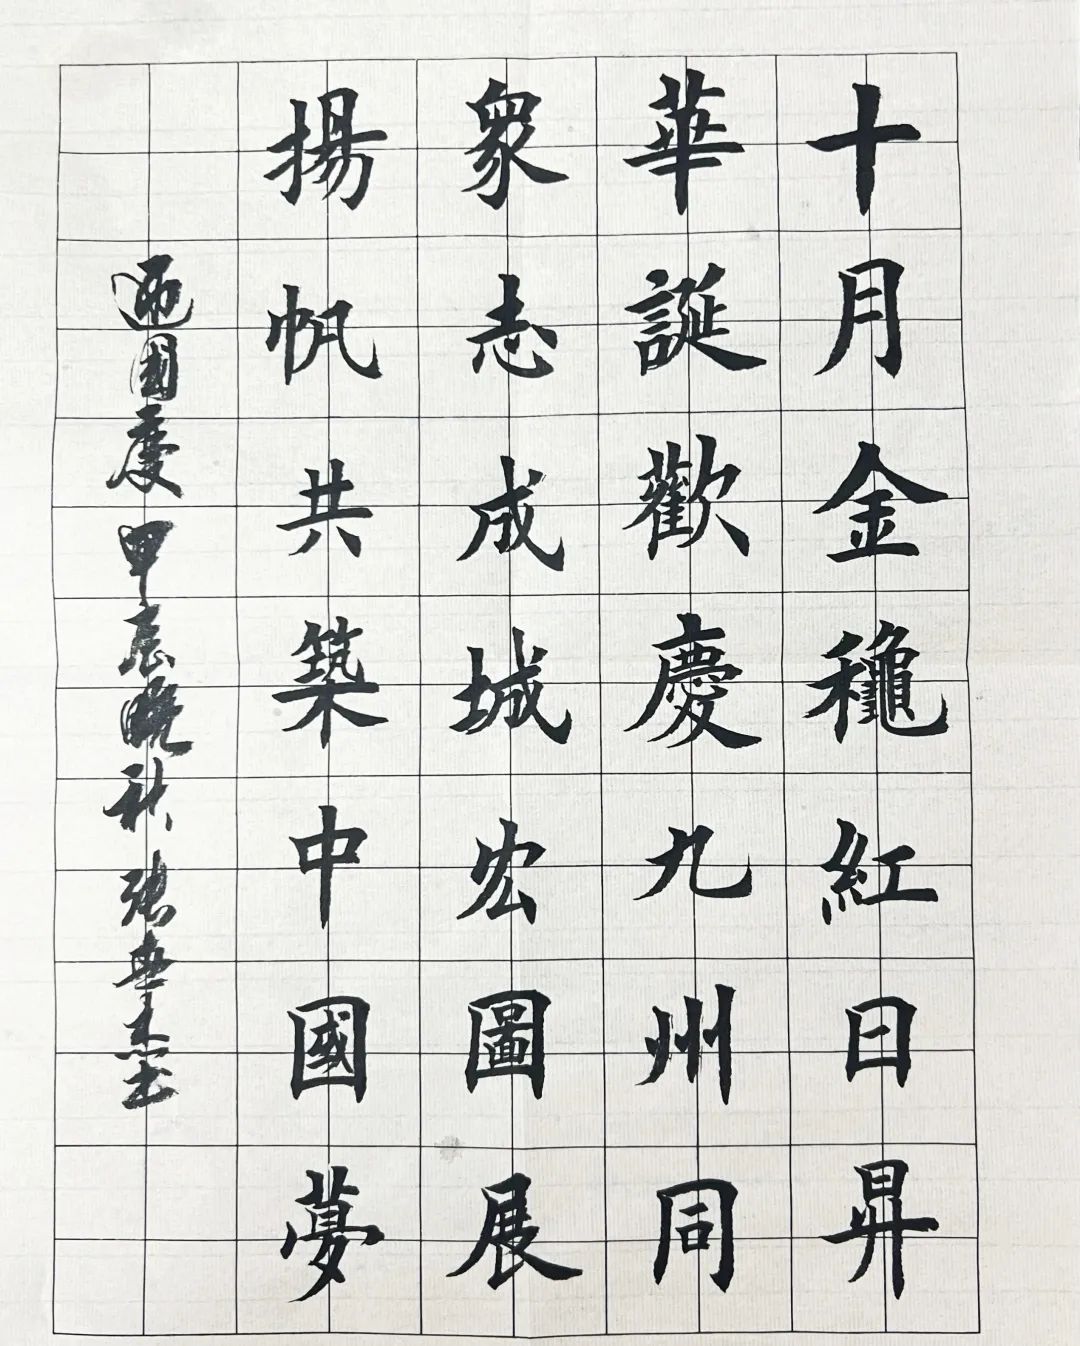 十月金穐紅日昇
華誕歡慶九州同
衆志成城宏圖展
揚帆共築中國夢
迎國慶甲辰晚秋張世杰書